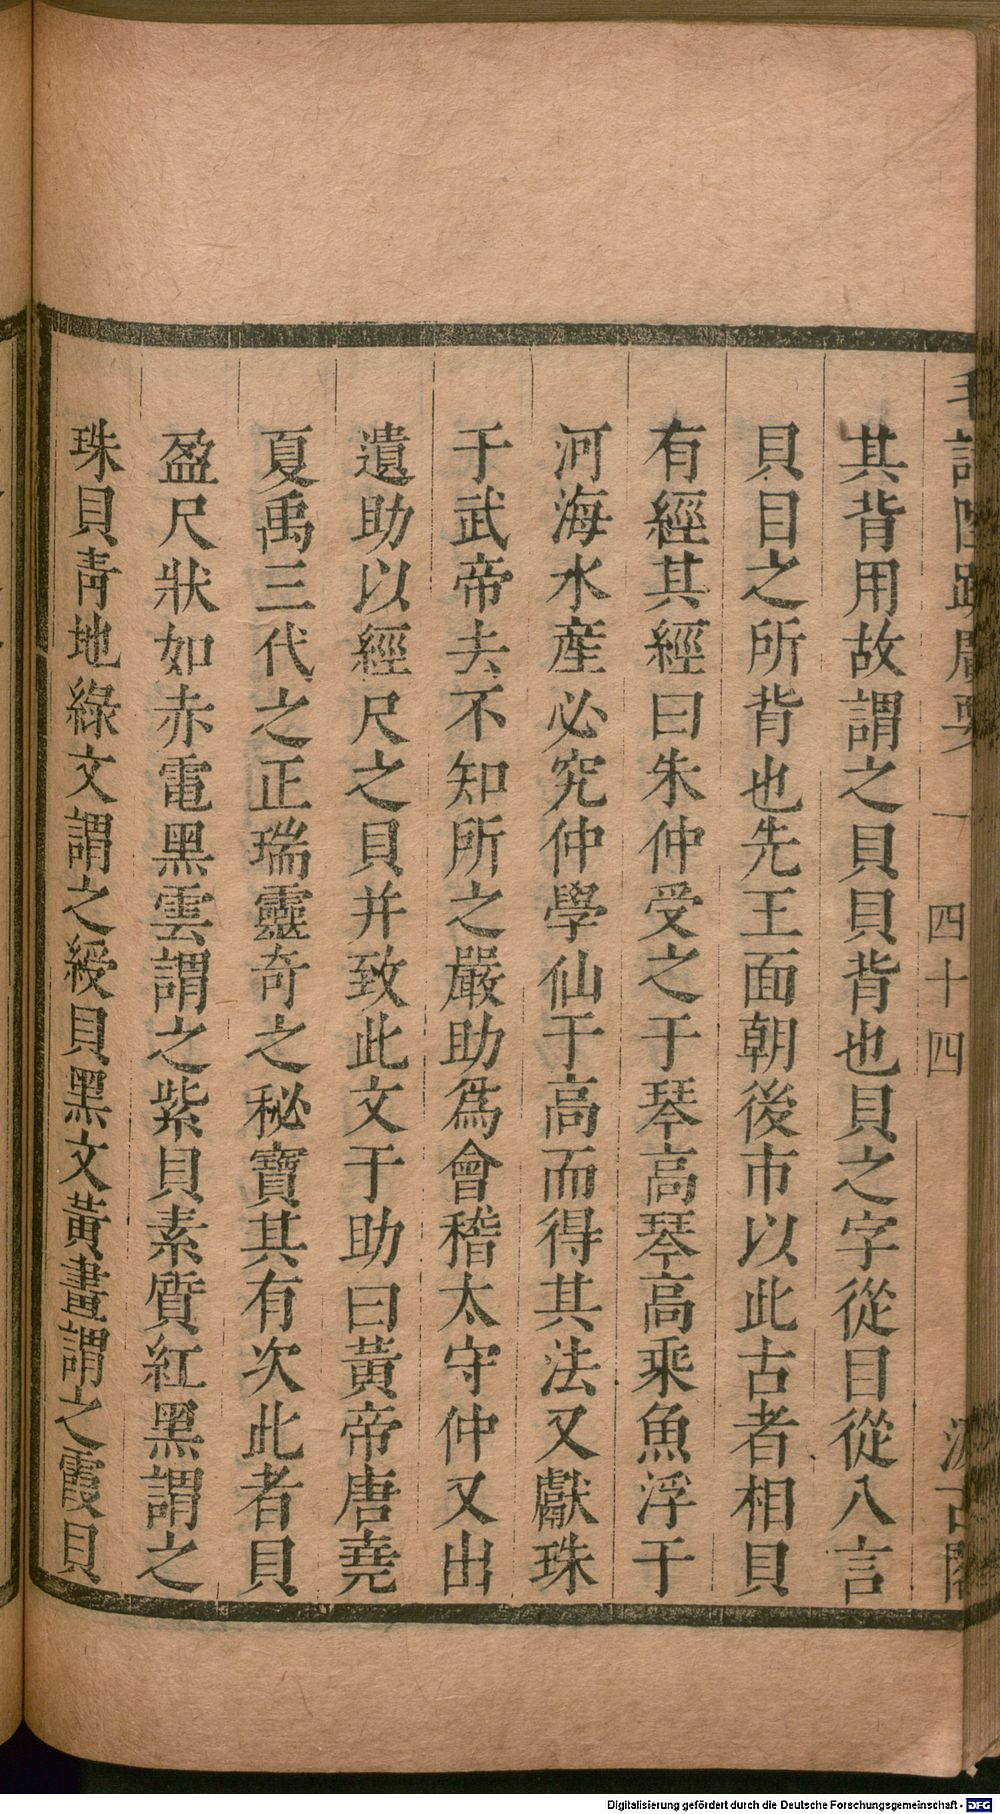 毛詩陸疏廣要 一 四十四 汲古閣
其背用故謂之貝貝背也貝之字從目從八言
貝目之所背也先王面朝後市以此古者相貝
有經其經曰朱仲受之于琴高琴高乘魚浮于
河海水產必究仲學仙于高而得其法又獻珠
于武帝去不知所之嚴助為會稽太守仲又出
遺助以經尺之貝并致此文于助曰黃帝唐堯
夏禹三代之正瑞靈奇之秘寶其有次此者貝
盈尺狀如赤電黑雲謂之紫貝素質紅黑謂之
珠貝青地綠文謂之綬貝黑文黃畫謂之霞貝
Digitalisierung gefördert durch die Deutsche Forschungsgemeinschaft - DFG